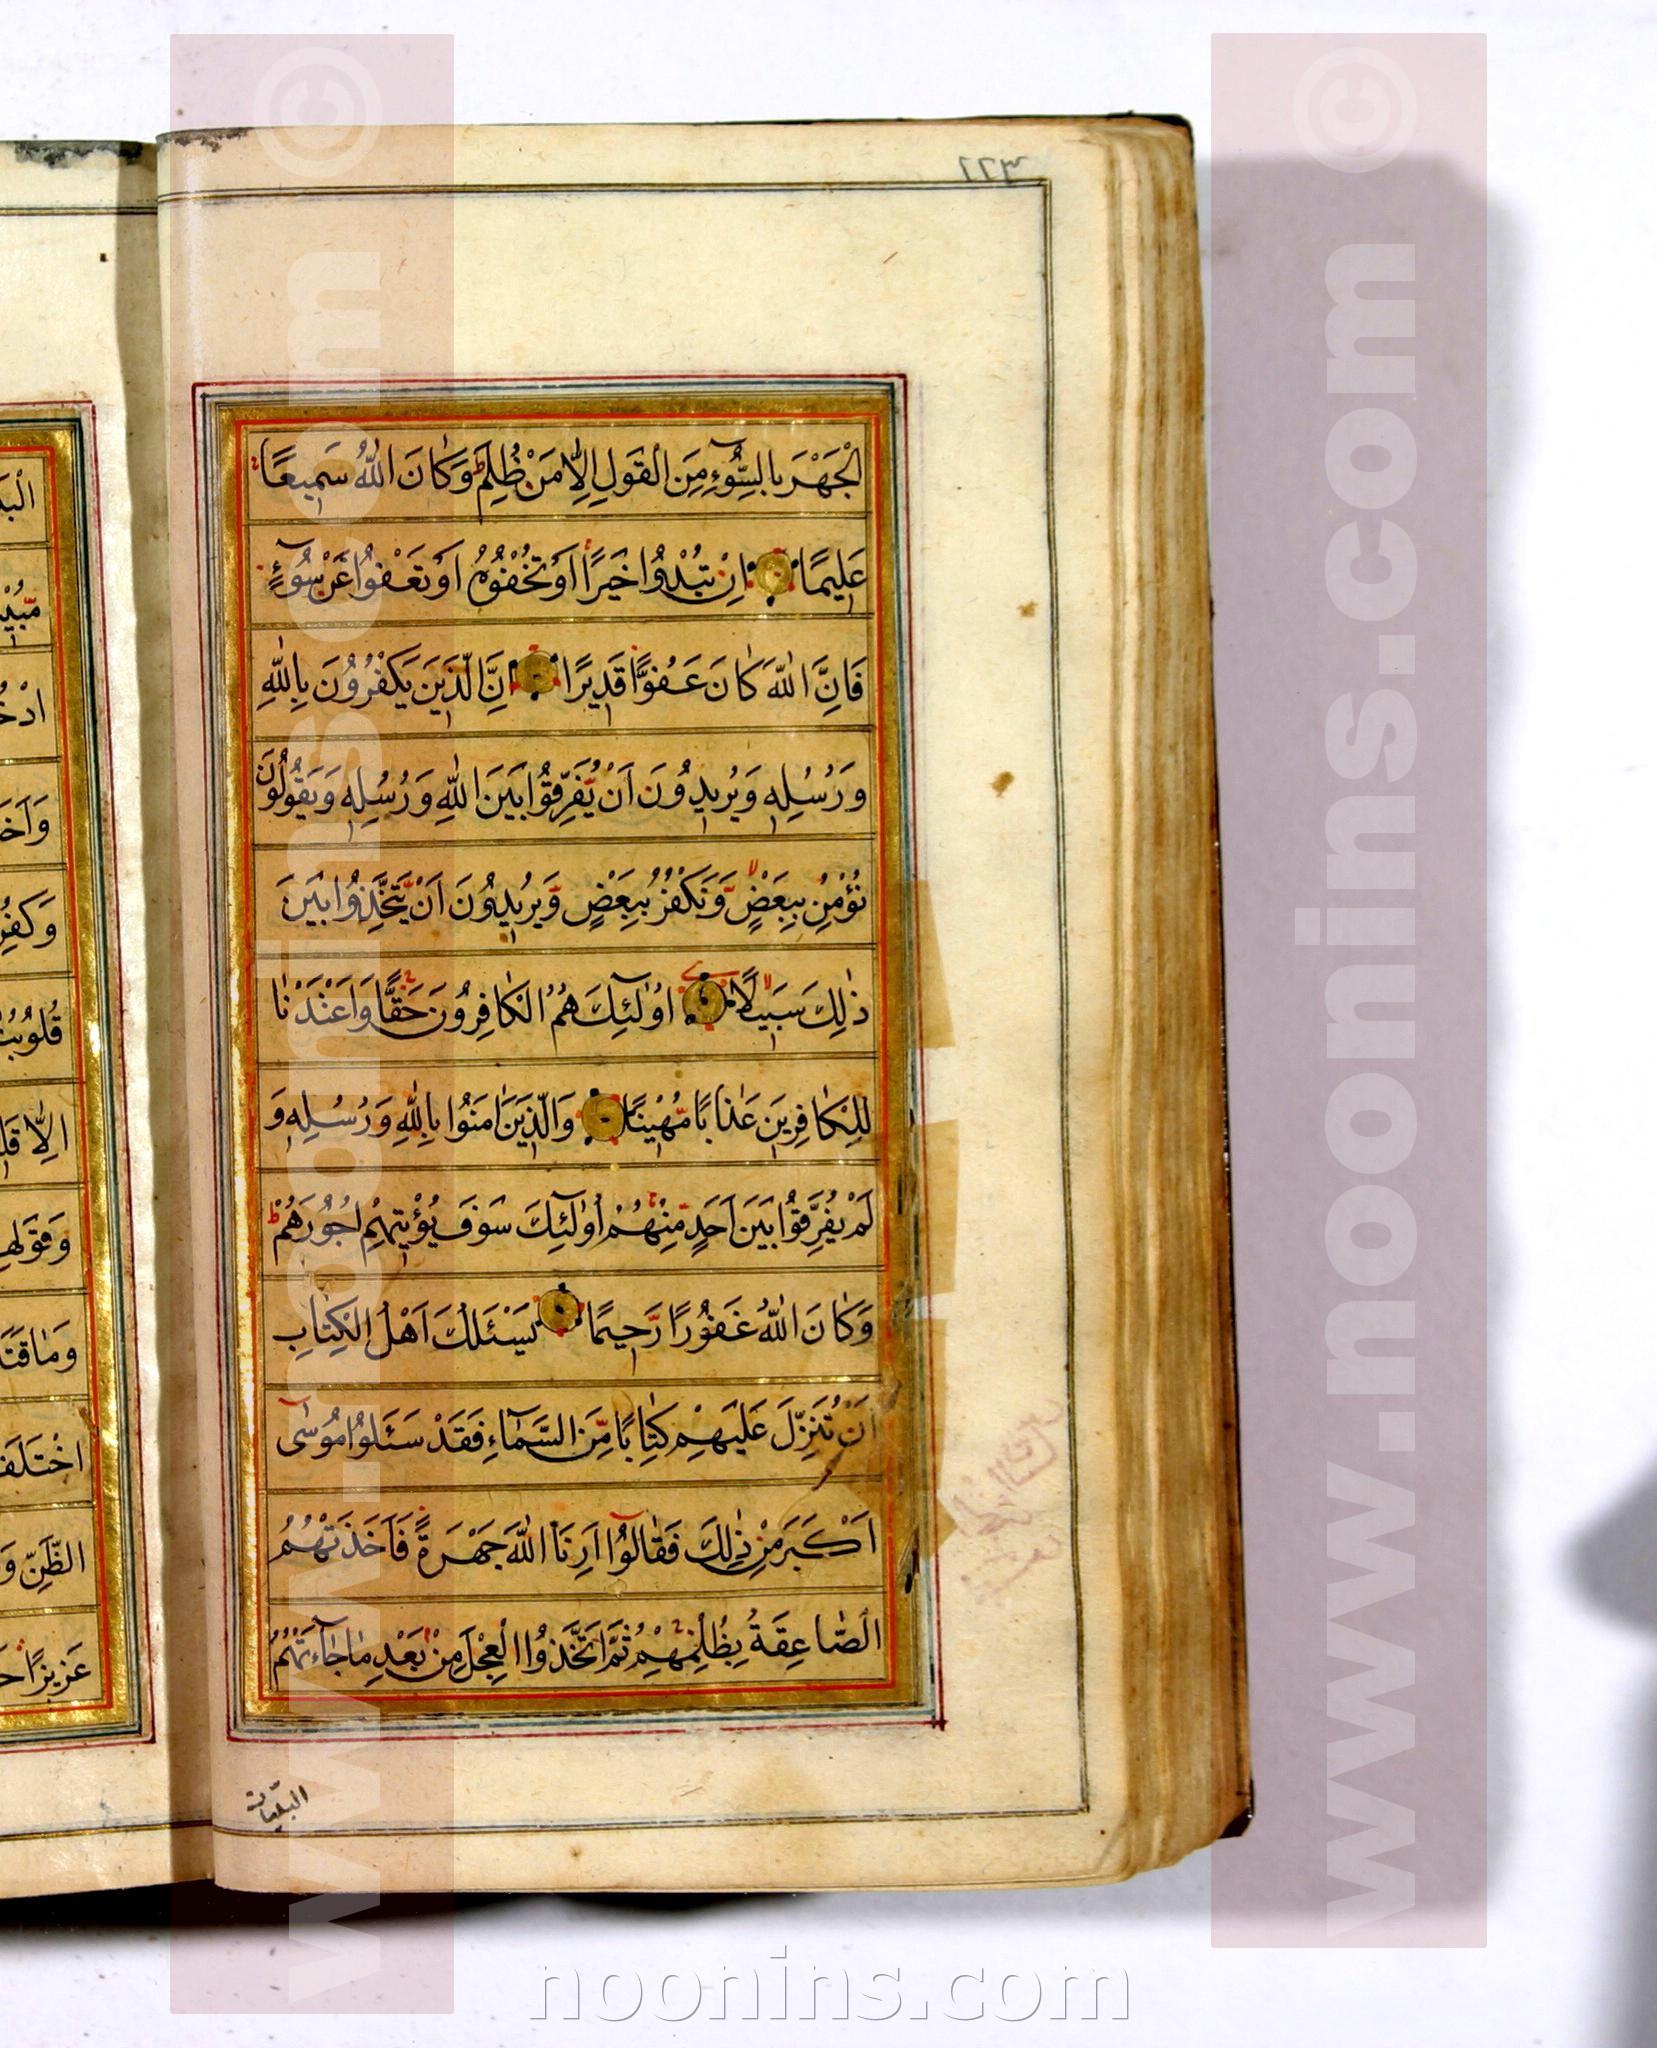 ٢٢٣
الْجَهْرَ بِالسُّوٓءِ مِنَ الْقَوْلِ اِلَّا مَنْ ظُلِمَ وَكَانَ اللّٰهُ سَمِيعًا
عَلِيمًا اِنْ تُبْدُوا خَيْرًا اَوْ تُخْفُوهُ اَوْ تَعْفُوا عَنْ سُوٓءٍ
فَاِنَّ اللّٰهَ كَانَ عَفُوًّا قَدِيرًا اِنَّ الَّذِينَ يَكْفُرُونَ بِاللّٰهِ
وَرُسُلِهِ وَيُرِيدُونَ اَنْ يُفَرِّقُوا بَيْنَ اللّٰهِ وَرُسُلِهِ وَيَقُولُونَ
نُؤْمِنُ بِبَعْضٍ وَنَكْفُرُ بِبَعْضٍ وَيُرِيدُونَ اَنْ يَتَّخِذُوا بَيْنَ
ذٰلِكَ سَبِيلًا اُولٰٓئِكَ هُمُ الْكَافِرُونَ حَقًّا وَاَعْتَدْنَا
لِلْكَافِرِينَ عَذَابًا مُهِينًا وَالَّذِينَ اٰمَنُوا بِاللّٰهِ وَرُسُلِهِ وَ
لَمْ يُفَرِّقُوا بَيْنَ اَحَدٍ مِنْهُمْ اُولٰٓئِكَ سَوْفَ يُؤْتِيهِمْ اُجُورَهُمْ
وَكَانَ اللّٰهُ غَفُورًا رَحِيمًا يَسْئَلُكَ اَهْلُ الْكِتَابِ
اَنْ تُنَزِّلَ عَلَيْهِمْ كِتَابًا مِنَ السَّمَآءِ فَقَدْ سَئَلُوا مُوسٰٓى
اَكْبَرَ مِنْ ذٰلِكَ فَقَالُوٓا اَرِنَا اللّٰهَ جَهْرَةً فَاَخَذَتْهُمُ
الصَّاعِقَةُ بِظُلْمِهِمْ ثُمَّ اتَّخَذُوا الْعِجْلَ مِنْ بَعْدِ مَا جَآءَتْهُمُ
البيّنات
الِّا
اخْتَلَف
الظَّنِّ وَ
www.noonins.com ©
www.noonins.com ©
noonins.com